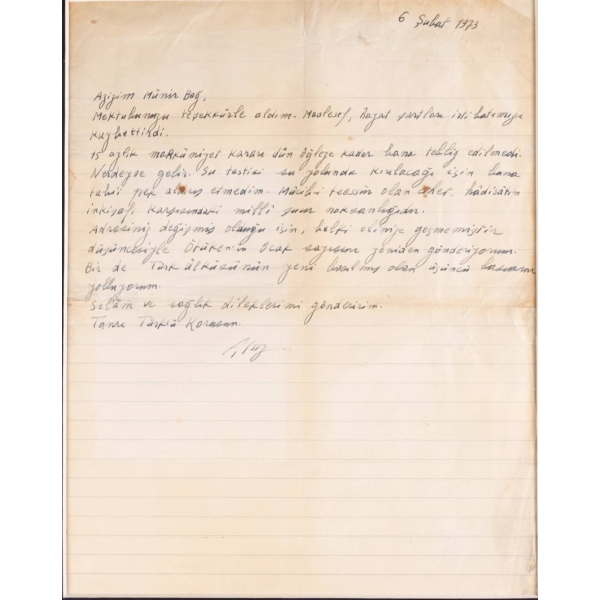 6 Şubat 1973
Azizim Münir Bağ,
Mektubunuzu teşekkürle aldım. Maalesef, hayat şartları irtibatımızı
kaybettirdi.
15 aylık mahkûmiyet kararı dün öğleye kadar bana tebliğ edilmedi.
Nerdeyse gelir. Su testisi su yolunda kırılacağı için buna
tabii pek aldırış etmedim. Mûcib-i teessür olan cihet, hâdisâtın
inkişafı karşısındaki millî şuur noksanlığıdır.
Adresiniz değişmiş olduğu için, belki elinize geçmemiştir
düşüncesiyle Ötüken'in Ocak sayısını yeniden gönderiyorum.
Bir de Türk Ülküsünün yeni basılmış olan üçüncü basımını
yolluyorum.
Selâm ve sağlık dileklerimi gönderirim.
Tanrı Türkü Korusun.